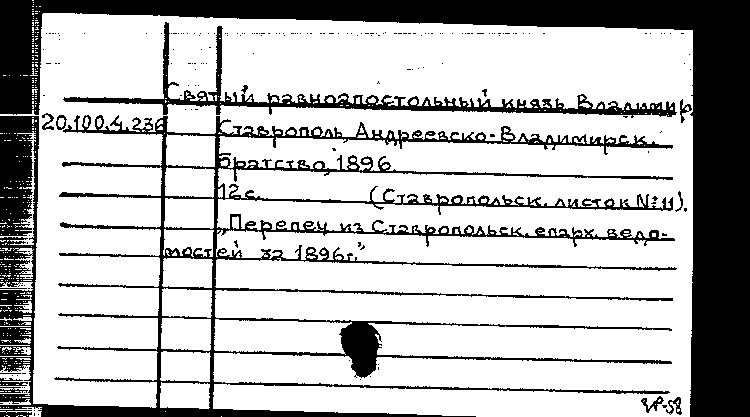 Святый равноапостольный князь Владимир.
20.100.4.236 Ставрополь, Андреевско-Владимирск.
братство, 1896.
12с. (Ставропольск. листок №11).
„Перепеч из Ставропольск. епарх. ведо-
мостей за 1896г."